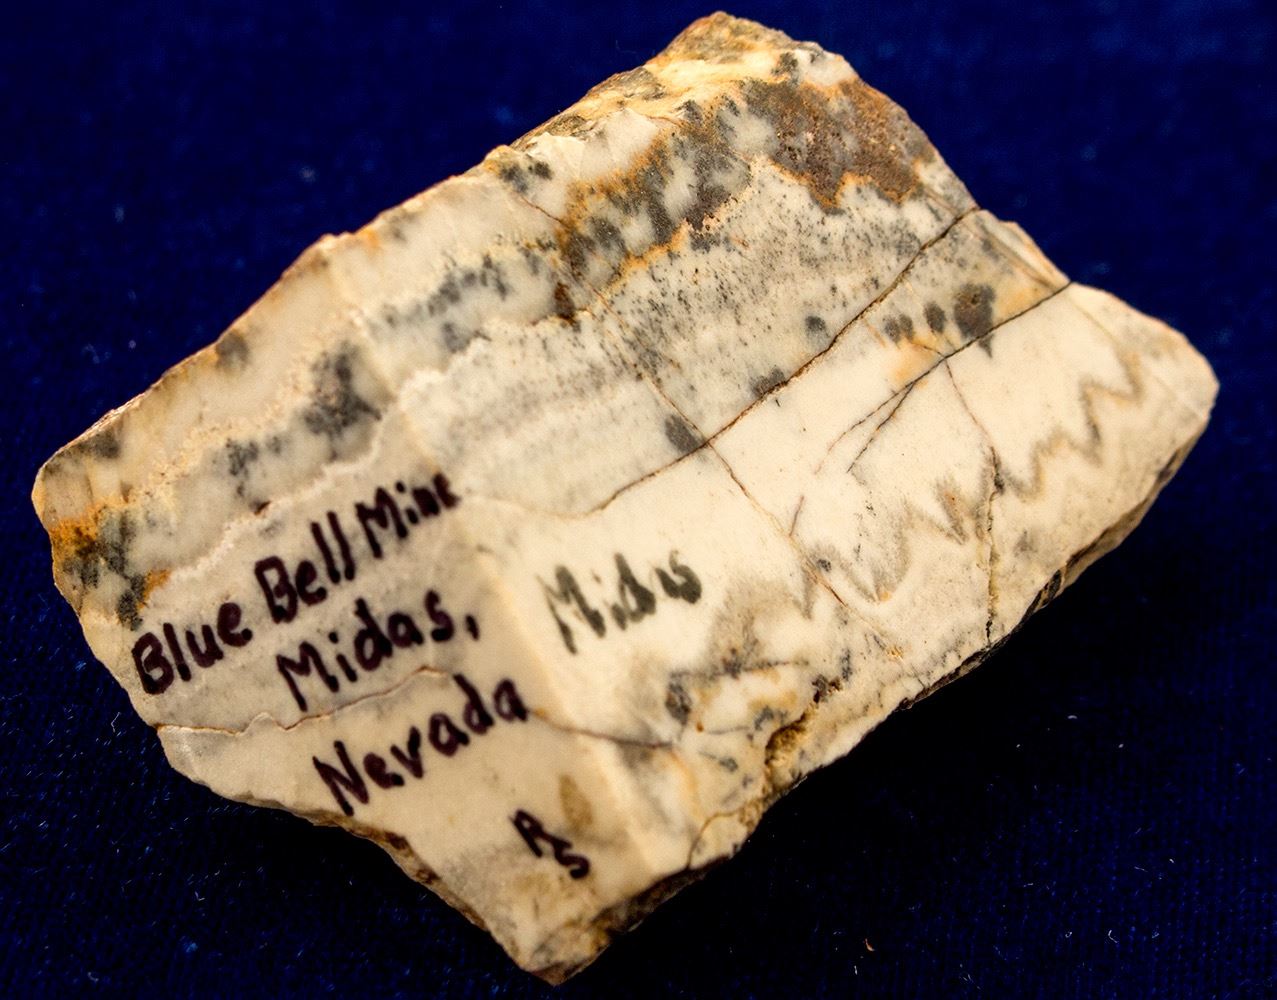 Blue Bell Mine
Midas,
Nevada
RS
Midas